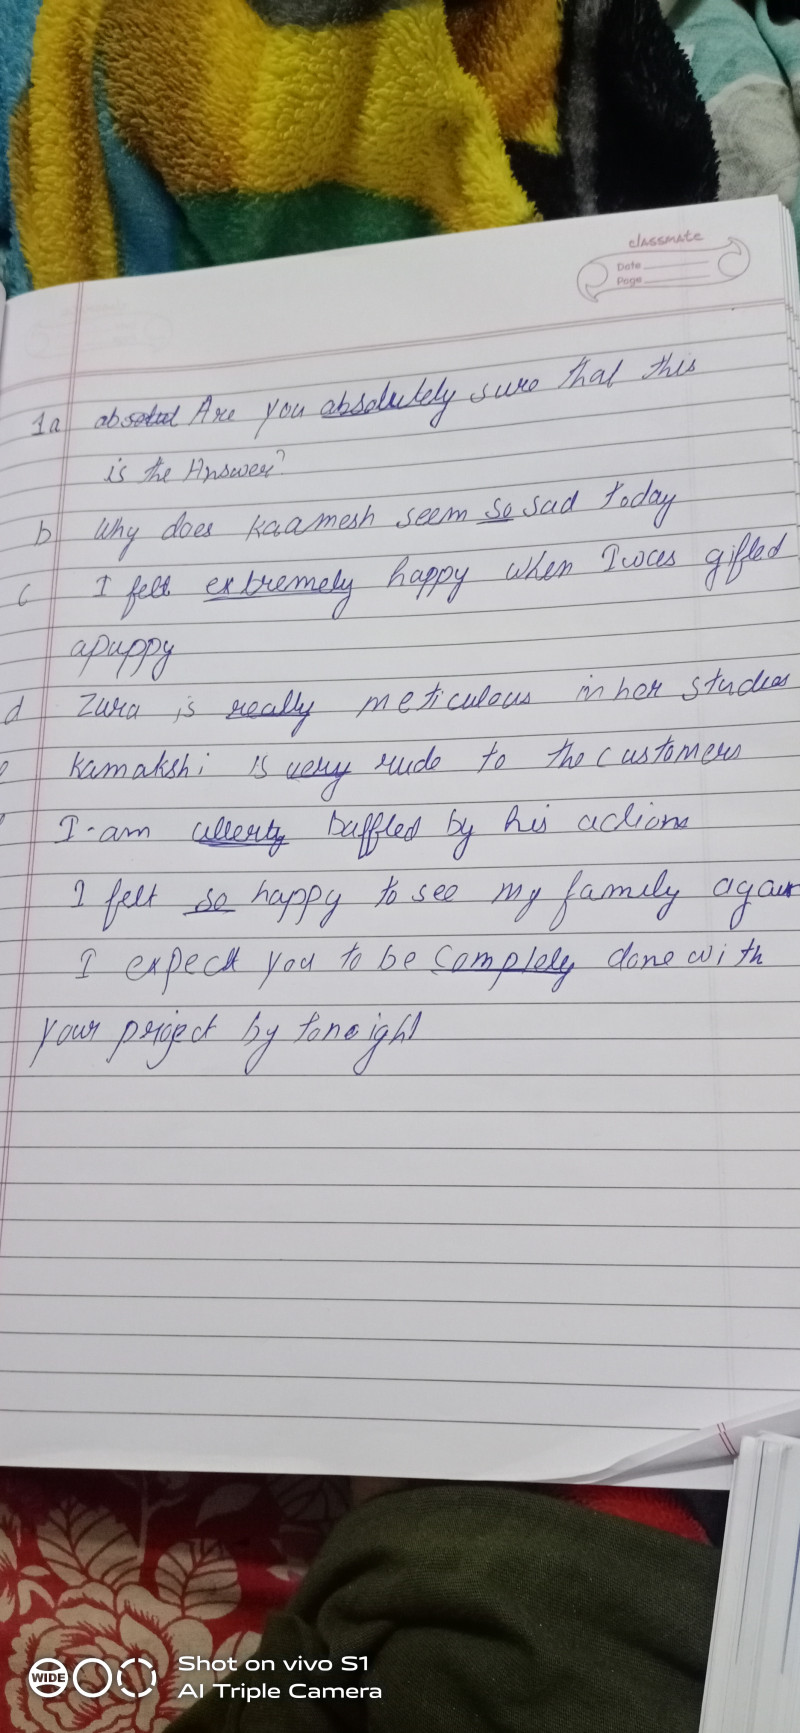 classmate
Date
Page
1a Are you absolutely sure that this
is the Answer?
b Why does Kaamesh seem so sad today
c I felt extremely happy when I was gifted
a puppy
d Zura is really meticulous in her studies
Kamakshi is very rude to the customers
I am utterly baffled by his actions
I felt so happy to see my family again
I expect you to be complely done with
your project by tonoight
WIDE
Shot on vivo S1
AI Triple Camera